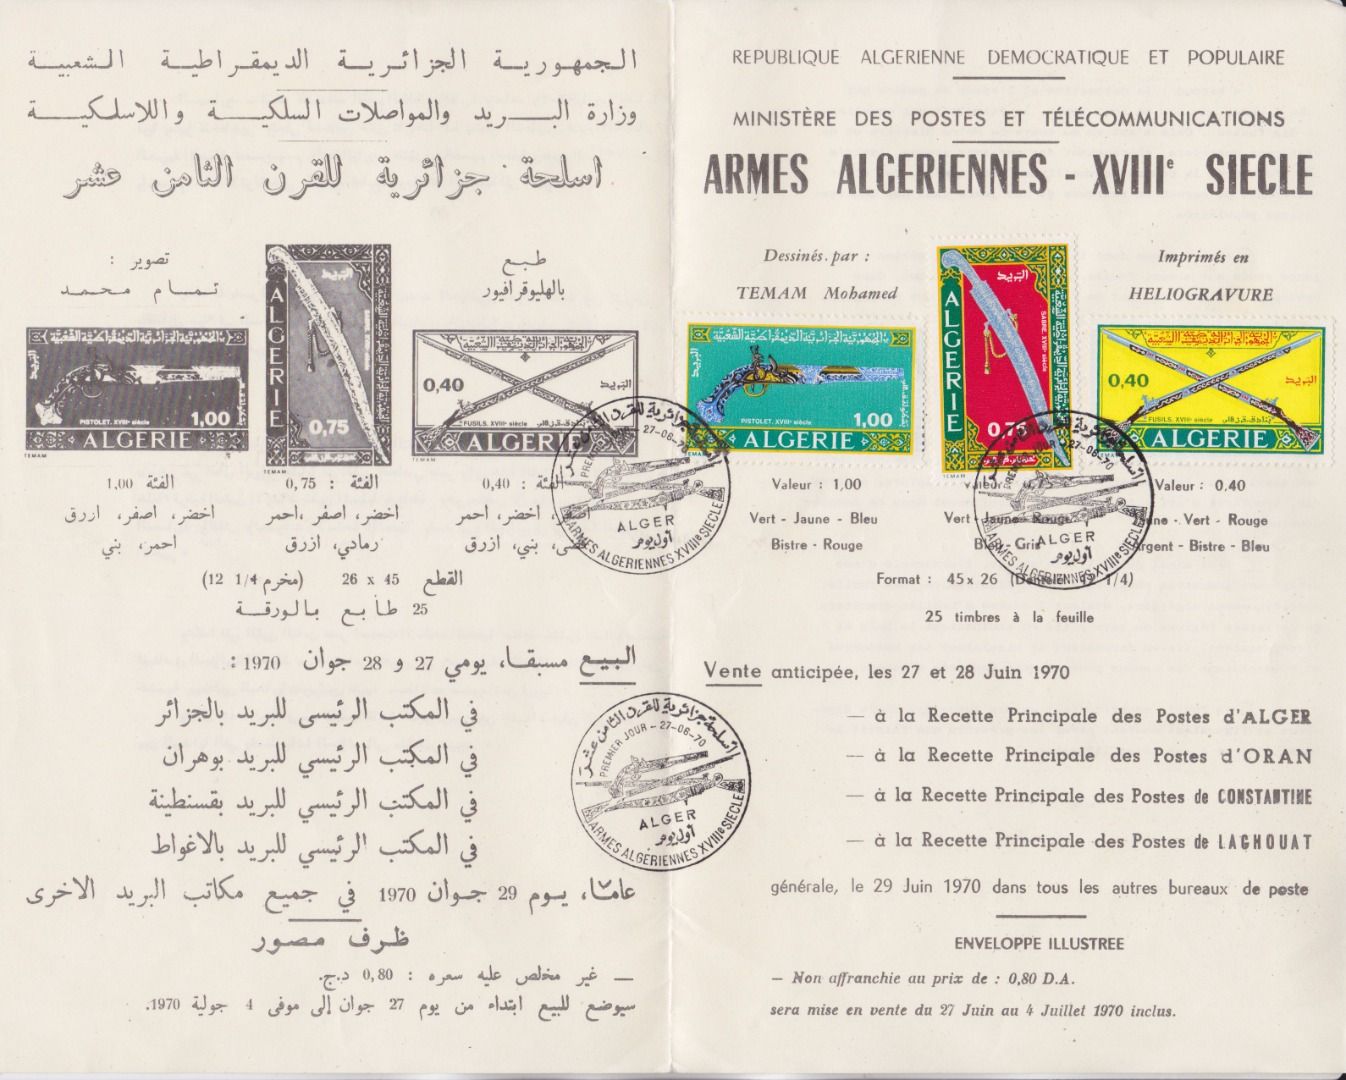 الجمهورية الجزائرية الديمقراطية الشعبية
وزارة البريد والمواصلات السلكية واللاسلكية
اسلحة جزائرية للقرن الثامن عشر
تصوير :
تمام محمد
طبع
بالهليوقرافيور
البريد
1,00
PISTOLET. XVIIIe siècle
ALGERIE
TEMAM
البريد
ALGERIE
0,75
TEMAM
0,40
البريد
FUSILS. XVIIIe siècle
ALGERIE
TEMAM
الفئة : 0,40
الفئة : 0,75
الفئة 1,00
اخضر، احمر
اخضر، اصفر ،احمر
اخضر، اصفر، ازرق
بني، ازرق
رمادي، ازرق
احمر، بني
القطع 45 x 26 (مخرم 1/4 12)
25 طابع بالورقة
البيع مسبقا، يومي 27 و 28 جوان 1970 :
في المكتب الرئيسي للبريد بالجزائر
في المكتب الرئيسي للبريد بوهران
في المكتب الرئيسي للبريد بقسنطينة
في المكتب الرئيسي للبريد بالاغواط
عاما، يوم 29 جوان 1970 في جميع مكاتب البريد الاخرى
ظرف مصور
— غير مخلص عليه سعره : 0,80 د.ج.
سيوضع للبيع ابتداء من يوم 27 جوان إلى موفى 4 جولية 1970.
اسلحة جزائرية للقرن الثامن عشر
PREMIER JOUR - 27-06-70
ALGER
أول يوم
ARMES ALGERIENNES XVIIIe SIECLE
REPUBLIQUE ALGERIENNE DEMOCRATIQUE ET POPULAIRE
MINISTÈRE DES POSTES ET TÉLÉCOMMUNICATIONS
ARMES ALGERIENNES - XVIIIe SIECLE
Dessinés par :
TEMAM Mohamed
Imprimés en
HELIOGRAVURE
البريد
1,00
PISTOLET. XVIIIe siècle
ALGERIE
TEMAM
البريد
ALGERIE
SABRE. XVIIIe siècle
0,75
TEMAM
0,40
البريد
FUSILS. XVIIIe siècle
ALGERIE
27-06-70
ALGER
أول يوم
ARMES ALGERIENNES XVIIIe SIECLE
27-06-70
ALGER
أول يوم
ARMES ALGERIENNES XVIIIe SIECLE
Valeur : 1,00
Valeur : 0,40
Vert - Jaune - Bleu
Vert - Jaune - Rouge
- Vert - Rouge
Bistre - Rouge
Bleu - Gris
Argent - Bistre - Bleu
Format : 45 x 26 (Dentelé 12 1/4)
25 timbres à la feuille
Vente anticipée, les 27 et 28 Juin 1970
— à la Recette Principale des Postes d'ALGER
— à la Recette Principale des Postes d'ORAN
— à la Recette Principale des Postes de CONSTANTINE
— à la Recette Principale des Postes de LAGHOUAT
générale, le 29 Juin 1970 dans tous les autres bureaux de poste
ENVELOPPE ILLUSTREE
— Non affranchie au prix de : 0,80 D.A.
sera mise en vente du 27 Juin au 4 Juillet 1970 inclus.